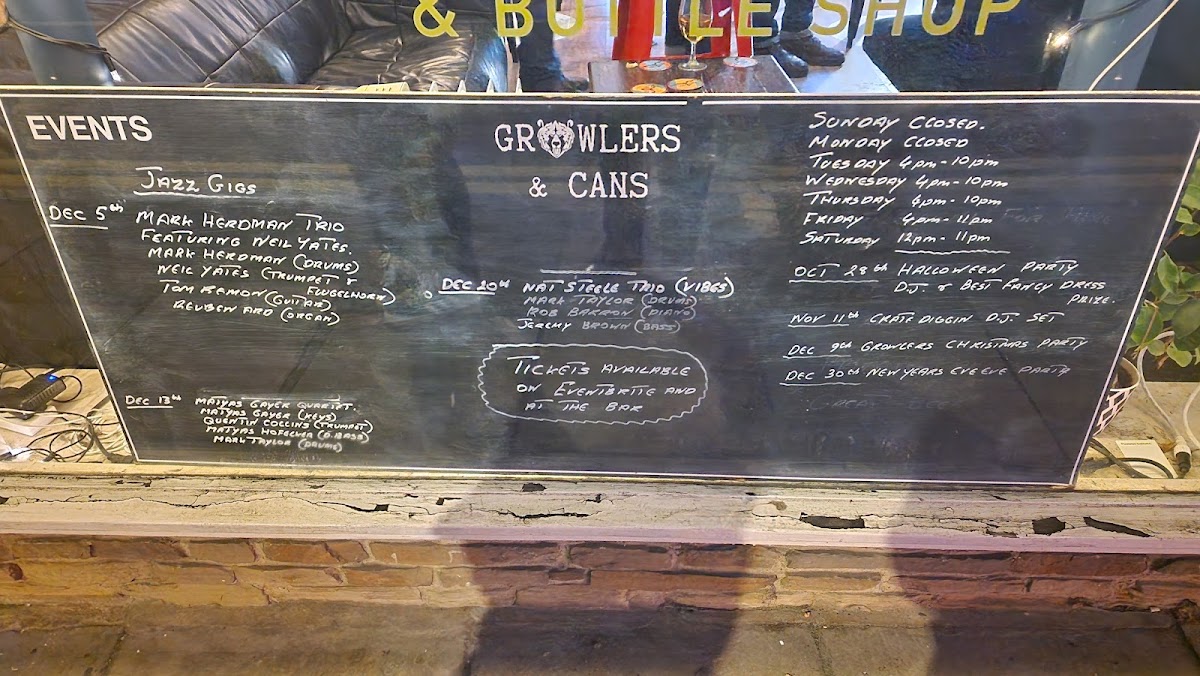 & BOTTLE SHOP
EVENTS
JAZZ GIGS
DEC 5th MARK HERDMAN TRIO
FEATURING NEIL YATES.
MARK HERDMAN (DRUMS)
NEIL YATES (TRUMPET &
FLUGELHORN)
TOM REMON (GUITAR)
REUBEN ARD (ORGAN)
DEC 13th MATYAS GAYER QUARTET.
MATYAS GAYER (KEYS)
QUENTIN COLLINS (TRUMPET)
MATYAS HOFECKER (D.BASS)
MARK TAYLOR (DRUMS)
GROWLERS
& CANS
DEC 20th NAT STEELE TRIO (VIBES)
MARK TAYLOR (DRUMS)
ROB BARRON (PIANO)
JEREMY BROWN (BASS)
TICKETS AVAILABLE
ON EVENTBRITE AND
AT THE BAR
SUNDAY CLOSED.
MONDAY CLOSED
TUESDAY 4pm-10pm
WEDNESDAY 4pm-10pm
THURSDAY 4pm-10pm
FRIDAY 4pm-11pm
SATURDAY 12pm-11pm
OCT 28th HALLOWEEN PARTY
D.J. & BEST FANCY DRESS
PRIZE.
NOV 11th CRATE DIGGIN D.J. SET
DEC 9th GROWLERS CHRISTMAS PARTY
DEC 30th NEW YEARS EVE EVE PARTY